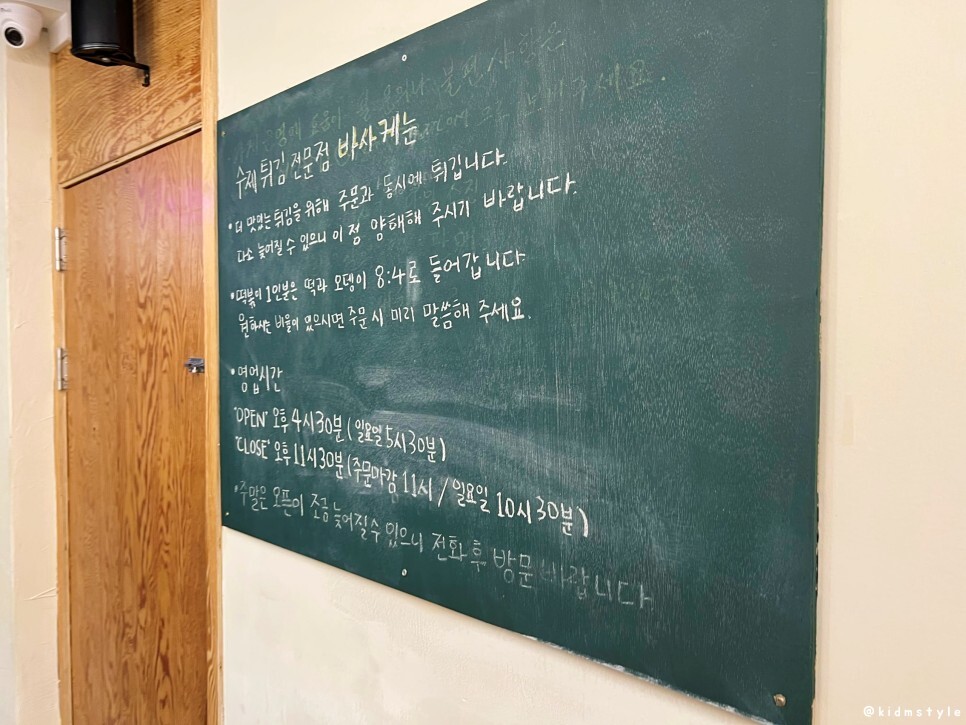 수제 튀김 전문점 바사케는
• 더 맛있는 튀김을 위해 주문과 동시에 튀깁니다.
다소 늦어질 수 있으니 이 점 양해해 주시기 바랍니다.
• 떡볶이 1인분은 떡과 오뎅이 8:4로 들어갑니다
원하시는 비율이 있으시면 주문 시 미리 말씀해 주세요.
• 영업시간
"OPEN" 오후 4시30분 (일요일 5시30분)
"CLOSE" 오후 11시30분 (주문마감 11시 / 일요일 10시30분)
• 주말은 오픈이 조금 늦어질 수 있으니 전화 후 방문 바랍니다
@kidmstyle